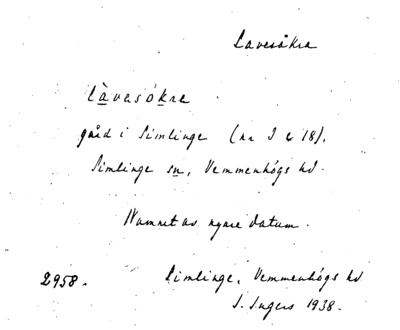 Lavesåkra
làvesókra
gård i Simlinge (nr 3 & 18).
Simlinge sn, Vemmenhögs hd.
Namnet av nyare datum.
2958. Simlinge, Vemmenhögs hd
I. Ingers 1938.